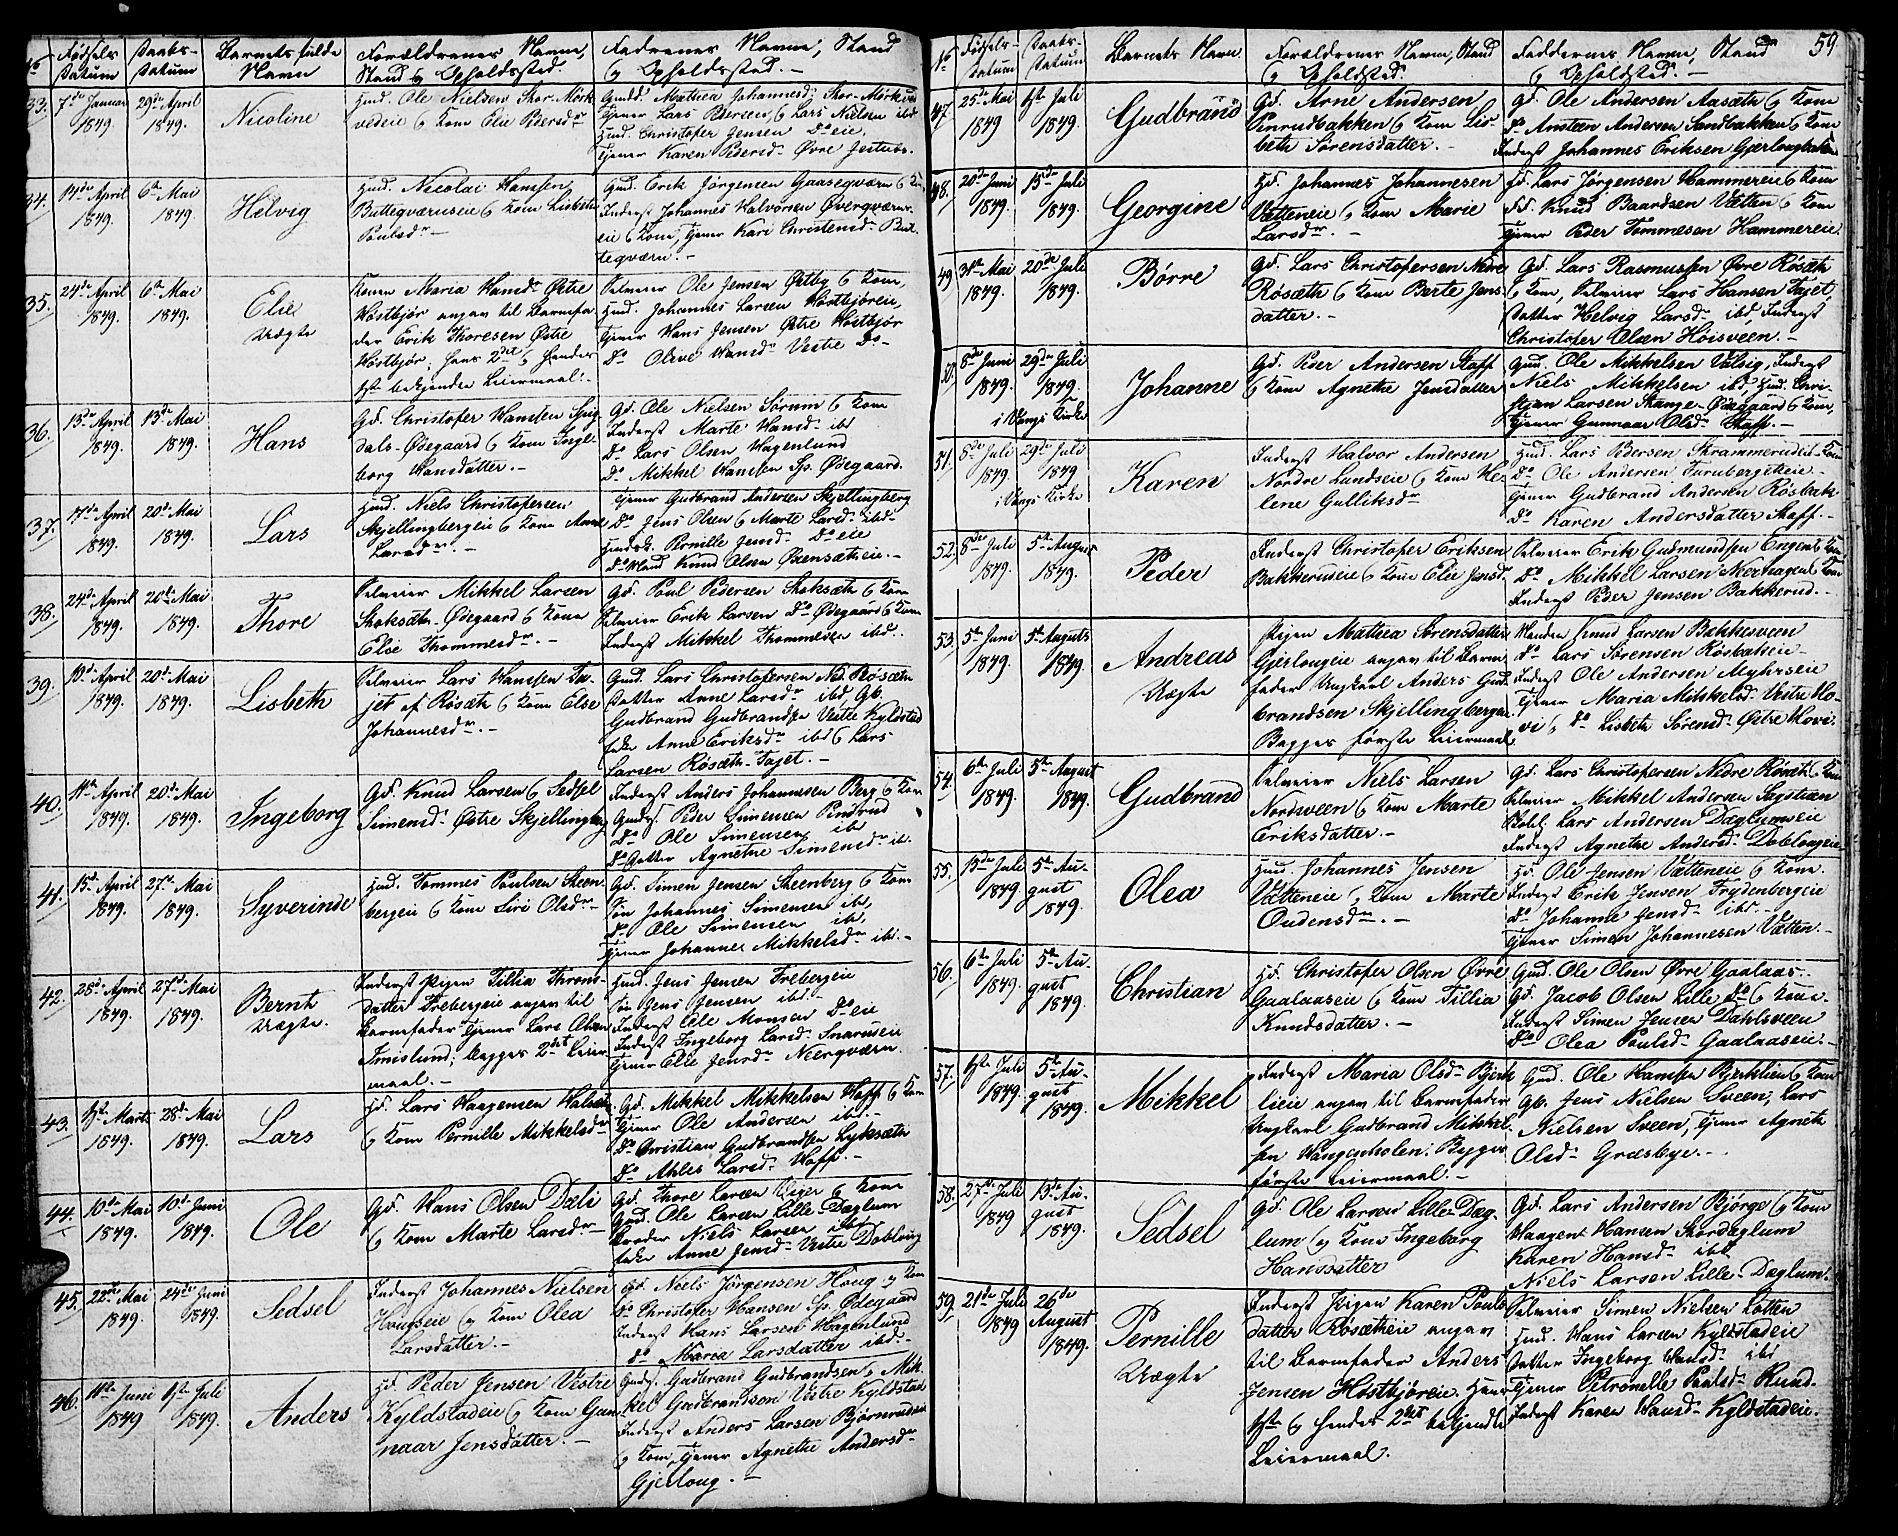 No Fødsels Datum Daabs-Datum Barnets fulde Navn Forældrenes Navne, Stand og Opholdssted. Fadrenes Navne, Stand og Opholdssted.-
33. 7de Januar 1849. 29de April 1849. Nicoline
Hud. Ole Nielsen Stor-Mørk
vedeie & Kone Elie Pedersdr
Guldb. Mathea Johannesd. Stor-Mørkv.
Tjener Lars Pedersen, & Lars Nielsen ibd
Hud. Christofer Jensen Do eie,
Tjener Karen Pedersd. Øvre Jestubs.
34. 14de April 1849. 6te Mai 1849 Helvig
Hud. Nicolai Hansen
Buttegværnseie & Kone Lisbeth
Poulsdr
Gud. Erik Jørgensen Gaasegværn & Kone,
Inderst Johannes Halvorsen Øvergværns-
eie & Kone, Tjener Kari Christensd. But-
tegværn.-
35. 24de April 1849. 6te Mai 1849. Elie Uægte
Konen Maria Hansdr Østre
Høstbjør angav til Barnefa-
der Erik Thoresen Østre
Høstbjør; hans 2det & hendes
1ste bekjendte Leiermaal.-
Selveier Ole Jensen Østby & Kone,
Hud. Johannes Larsen Høstbjøreie
Tjener Hans Jensen Østre Høstbjør
Do Oleve Hansd. Vestre Do-
36. 15de April 1849. 13de Mai 1849. Hans
Gd. Christofer Hansen Spig
dals-Ødegaard & Kone Inge-
borg Hansdatter.-
Gd. Ole Nielsen Sørum & Kone
Inderst Marte Hansd. ibd
Do Lars Olsen Hagenlund
Do Mikkel Hansen Sp. Ødegaard.
37. 17de April 1849. 20de Mai 1849. Lars
Hud. Niels Christofersen
Skjellingbergeie & Kone Anne
Larsdr.-
Tjener Gudbrand Andersen Skjellingberg
Do Jens Olsen & Marte Larsd. ibd-
Huusk. Pernille Jensd. Do eie
Do Mand Knud Olsen Oxensætheie.-
38. 24de April 1849. 20de Mai 1849. Thore
Selveier Mikkel Larsen
Stoksæth-Ødegaard & Kone
Else Thommesdr.-
Gd. Poul Pedersen Stoksæth & Kone
Selveier Erik Larsen Do Ødegaard & Kone
Inderst Mikkel Thommesen ibd.
39. 10de April 1849. 20de Mai 1849. Lisbeth
Selveier Lars Hansen Ta-
jet af Røsæth & Kone Else
Johannesdr.-
Gud. Lars Christofersen Ned. Røsæth
Datter Anne Larsdr ibd Gb.
Gudbrand Gudbrandsen Vestre Kyldstad
Enke Anne Eriksdr ibd & Lars
Larsen Røsæth-Tajet.-
40. 11te April 1849. 20de Mai 1849. Ingeborg
Gd. Knud Larsen & Sedsel
Simensd. Østre Skjellingberg
Inderst Anders Johannesen Berg & Kone
Gud. Peder Simensen Pindrud
Do Ole Simensen ib
Do Datter Agnethe Simensd. ib.
41. 15de April 1849. 27de Mai 1849. Syverinde
Hud. Tommes Poulsen Steen-
bergeie & Kone Siri Olsdr
Gd. Simen Jensen Steenberg & Kone
Søn Johannes Simensen ib,
Do Ole Simensen ib,
Tjener Johannes Mikkelsdr ib.-
42. 28de April 1849. 27de Mai 1849. Bernt Uægte.
Inderst Pigen Tillia Throns-
datter Frebergeie angav til
Barnefader Tjener Lars Olsen
Imislund; Begges 2det Leier-
maal.-
Hud. Jens Jensen Frebergeie
Søn Jens Jensen ibd-
Inderst Ole Monsen Do eie
Inderst Ingeborg Larsd. Snarueie
Tjener Elie Jensdr Neergværn.
43. 1ste Marts 1849. 28de Mai 1849. Lars
Hd. Lars Haagensen Halseth
& Kone Pernille Mikkelsdr
Gd. Mikkel Mikkelsen Hoff & Kone
Tjener Ole Andersen ibd.-
Do Christian Gudbrandsen Lyksæth
Do Ahles Larsd. Hoff.-
44. 10de Mai 1849. 10de Juni 1849. Ole
Gd. Hans Olsen Dæli
& Kone Marte Larsdr
Gd. Thore Larsen Viger & Kone
Gud. Ole Larsen Lille Dæglum
Broder Niels Larsen ibd
Enke Anne Jensd. Vestre Dobloug
45. 22de Mai 1849. 24de Juni 1849. Sedsel
Inderst Johannes Nielsen
Hougseie & Kone Olea
Larsdatter.-
Gd. Niels Jørgensen Houg & Kone
Do Christofer Hansen Sp. Ødegaard
Inderst Hans Larsen Hagenlund
Do Maria Larsdatter ibd.-
46. 11te Juni 1849 1ste Juli 1849. Anders
Hd. Peder Jensen Vestre
Kyldstadeie & Kone Gun-
naar Jensdatter.-
Gud. Gudbrand Gudbrandsen & Mik-
kel Gudbrandsen Vestre Kyldstad
Inderst Anders Larsen Bjørnrudseie
& Kone, Tjener Agnethe Andersdr
Gjerloug.-
59.
No Fødsels-Datum Daabs-Datum Barnets Navn Forældrenes Navn, Stand & Opholdsted. Faddernes Navn, Stand & Opholdsted.-
47. 25de Mai 1849 1ste Juli 1849. Gudbrand
Gd. Arne Andersen
Pinrudbakken & Kone Lis-
beth Sørensdatter.-
Gd. Ole Andersen Aasæth & Kone
Do Ansteen Andersen Sandbakken & Kone
Inderst Johannes Eriksen Gjerlougbaken
48. 20de Juni 1849. 15de Juli 1849. Georgine
Hd. Johannes Johannesen
Vætteneie & Kone Marie
Larsdr.-
Hd. Lars Jørgensen Hammereie & Kone
Fd. Knud Baardsen Vætten & Kone
Tjener Peder Tommesen Hammereie.
49. 31te Mai 1849. 20de Juli 1849. Børre
Gd. Lars Christofersen Nedre
Røsæth & Kone Berte Jens-
datter.-
Gd. Lars Rasmussen Øvre Røsæth
& Kone, Selveier Lars Hansen Tajet,
Datter Helvig Larsd. ibd, Inderst
Christofer Olsen Hoisveen.-
50. 8de Juni 1849. 29de Juli 1849. i Vangs Kirke Johanne
Gd. Peder Andersen Staff
& Kone Agnethe Jensdatter
Gud. Ole Mikkelsen Valsig, Inderst
Niels Mikkelsen ibd. Hud. Chri-
stjan Larsen Stange-Ødegaard & Kone,
Tjener Gunnaar Olsd. Staff.-
51. 8de Juli 1849 29de Juli 1849 i Vangs Kirke Karen
Inderst Halvor Andersen
Nordre Lundseie & Kone He-
lene Gulliksdr
Hud. Lars Pedersen Strammerudeie & Kone
Do Ole Andersen Furubergeie-
Tjener Gudbrand Andersen Røsbak
Do Karen Andersdatter Staff.-
52. 8de Juli 1849. 5te August 1849. Peder
Inderst Christofer Eriksen
Bakkerudeie & Kone Elie Jensd.
Selveier Erik Gudmundsen Engen & Kone,
Do Mikkel Larsen Skerhagen & Kone
Inderst Peder Jensen Bakkerud.-
53. 5te Juni 1849. 5te August 1849. Andreas Uægte
Pigen Mathea Sørensdatter
Gjerlougeie angav til Barne-
fader Ungkarl Anders Gud-
brandsen Skjellingbergeie.
Begges første Leiermaal
Manden Knud Larsen Bækkesveen
Do Lars Sørensen Røsbækeie-
Inderst Ole Andersen Myhrseie
Tjener Maria Mikkelsd. Vestre Ho-
vi & Do Lisbeth Sørensd. Østre Hovi.
54. 6te Juli 1849. 5te August 1849. Gudbrand
Selveier Niels Larsen
Nordsveen & Kone Marte
Eriksdatter.-
Gd. Lars Christofersen Nedre Røsæth & Kone
Selveier Mikkel Andersen
Lars Andersen Dæglumseie
Inderst Agnethe Andersd. Doblougeie
55. 15de Juli 1849 5te August 1849. Olea
Hud. Johannes Jensen
Vætteneie & Kone Marthe
Oudensdr.-
Hd. Ole Jensen Vætteneie & Kone.
Inderst Erik Jensen Frydenbergeie
Do Johanne Jensd. ibd.-
Tjener Simen Johannesen Vætten.-
56. 6te Juli 1849 5te August 1849. Christian
Hd. Christofer Olsen Øvre
Gaalaaseie & Kone Tillia
Knudsdatter.-
Gud. Ole Olsen Øvre Gaalaas-
Gd. Jacob Olsen Lille Do & Kone.
Inderst Simen Jensen Dahlsveen
Do Olea Poulsd. Gaalaaseie.-
57. 1ste Juli 1849. 5te August 1849. Mikkel
Inderst Maria Olsdr Bjerk
lieie angav til Barnefader
Ungkarl Gudbrand Mikkel-
sen Wangensholen. Begges
første Leiermaal.-
Gud. Ole Hansen Bjerklien & Kone
Gb. Jens Nielsen Sveen, Lars
Nielsen Sveen, Tjener Agnethe
Olsd. Græsbye.-
58. 27de Juli 1849 13de August 1849. Sedsel
Gd. Ole Larsen Lille-Dæg-
lum & Kone Ingeborg
Hansdatter
Gd. Lars Andersen Bjørge & Kone
Haagen Hansen Stordæglum
Karen Hansd. ibd.
Niels Larsen Lille-Dæglum.
59. 21de Juli 1849 26de August 1849. Pernille Uægte
Inderst Pigen Karen Pouls
datter Røsætheie angav
til Barnefader Anders
Jensen Høstbjøreie. Hans
1ste & hendes 2det bekjendte
Leiermaal.
Selveier Simen Nielsen Lotten
Hud. Hans Larsen Kyldstadeie
Datter Ingeborg Hansd. ibd
Tjener Petronelle Poulsd. Rund-
Inderst Karen Hansd. Kyldstadeie.